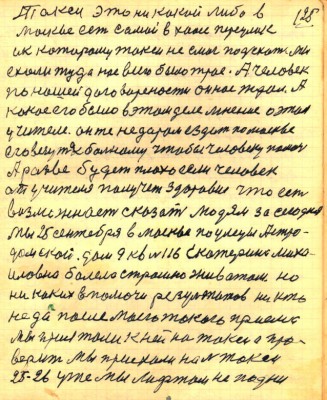 125
Такси это никакой либо в
Москве ест самой в хаос переулик
ик которому такси не смог подехат. мы
ехали туда нас в было трое. А человек
по нашей договорености он нас ждал. А
какое его было в этом деле мнение о этом
учителе. он те не даром ездит по Москве
его везут к болному чтобы человеку помоч
А разве будет плохо если человек
от учителя получет здоровие что ест
возможност сказат людям за сегодня
Мы 25 сентября в Москве по улецы Астро-
домской. дом 9 кв N 116 Екатерина Миха-
иловна болела страшно животом но
ни каких в помоч результатов ни кто
не да после моего такого приема
мы приехали к ней на такси а про-
верит мы приехали на м такси
25-26 уже мы лифтом не подни